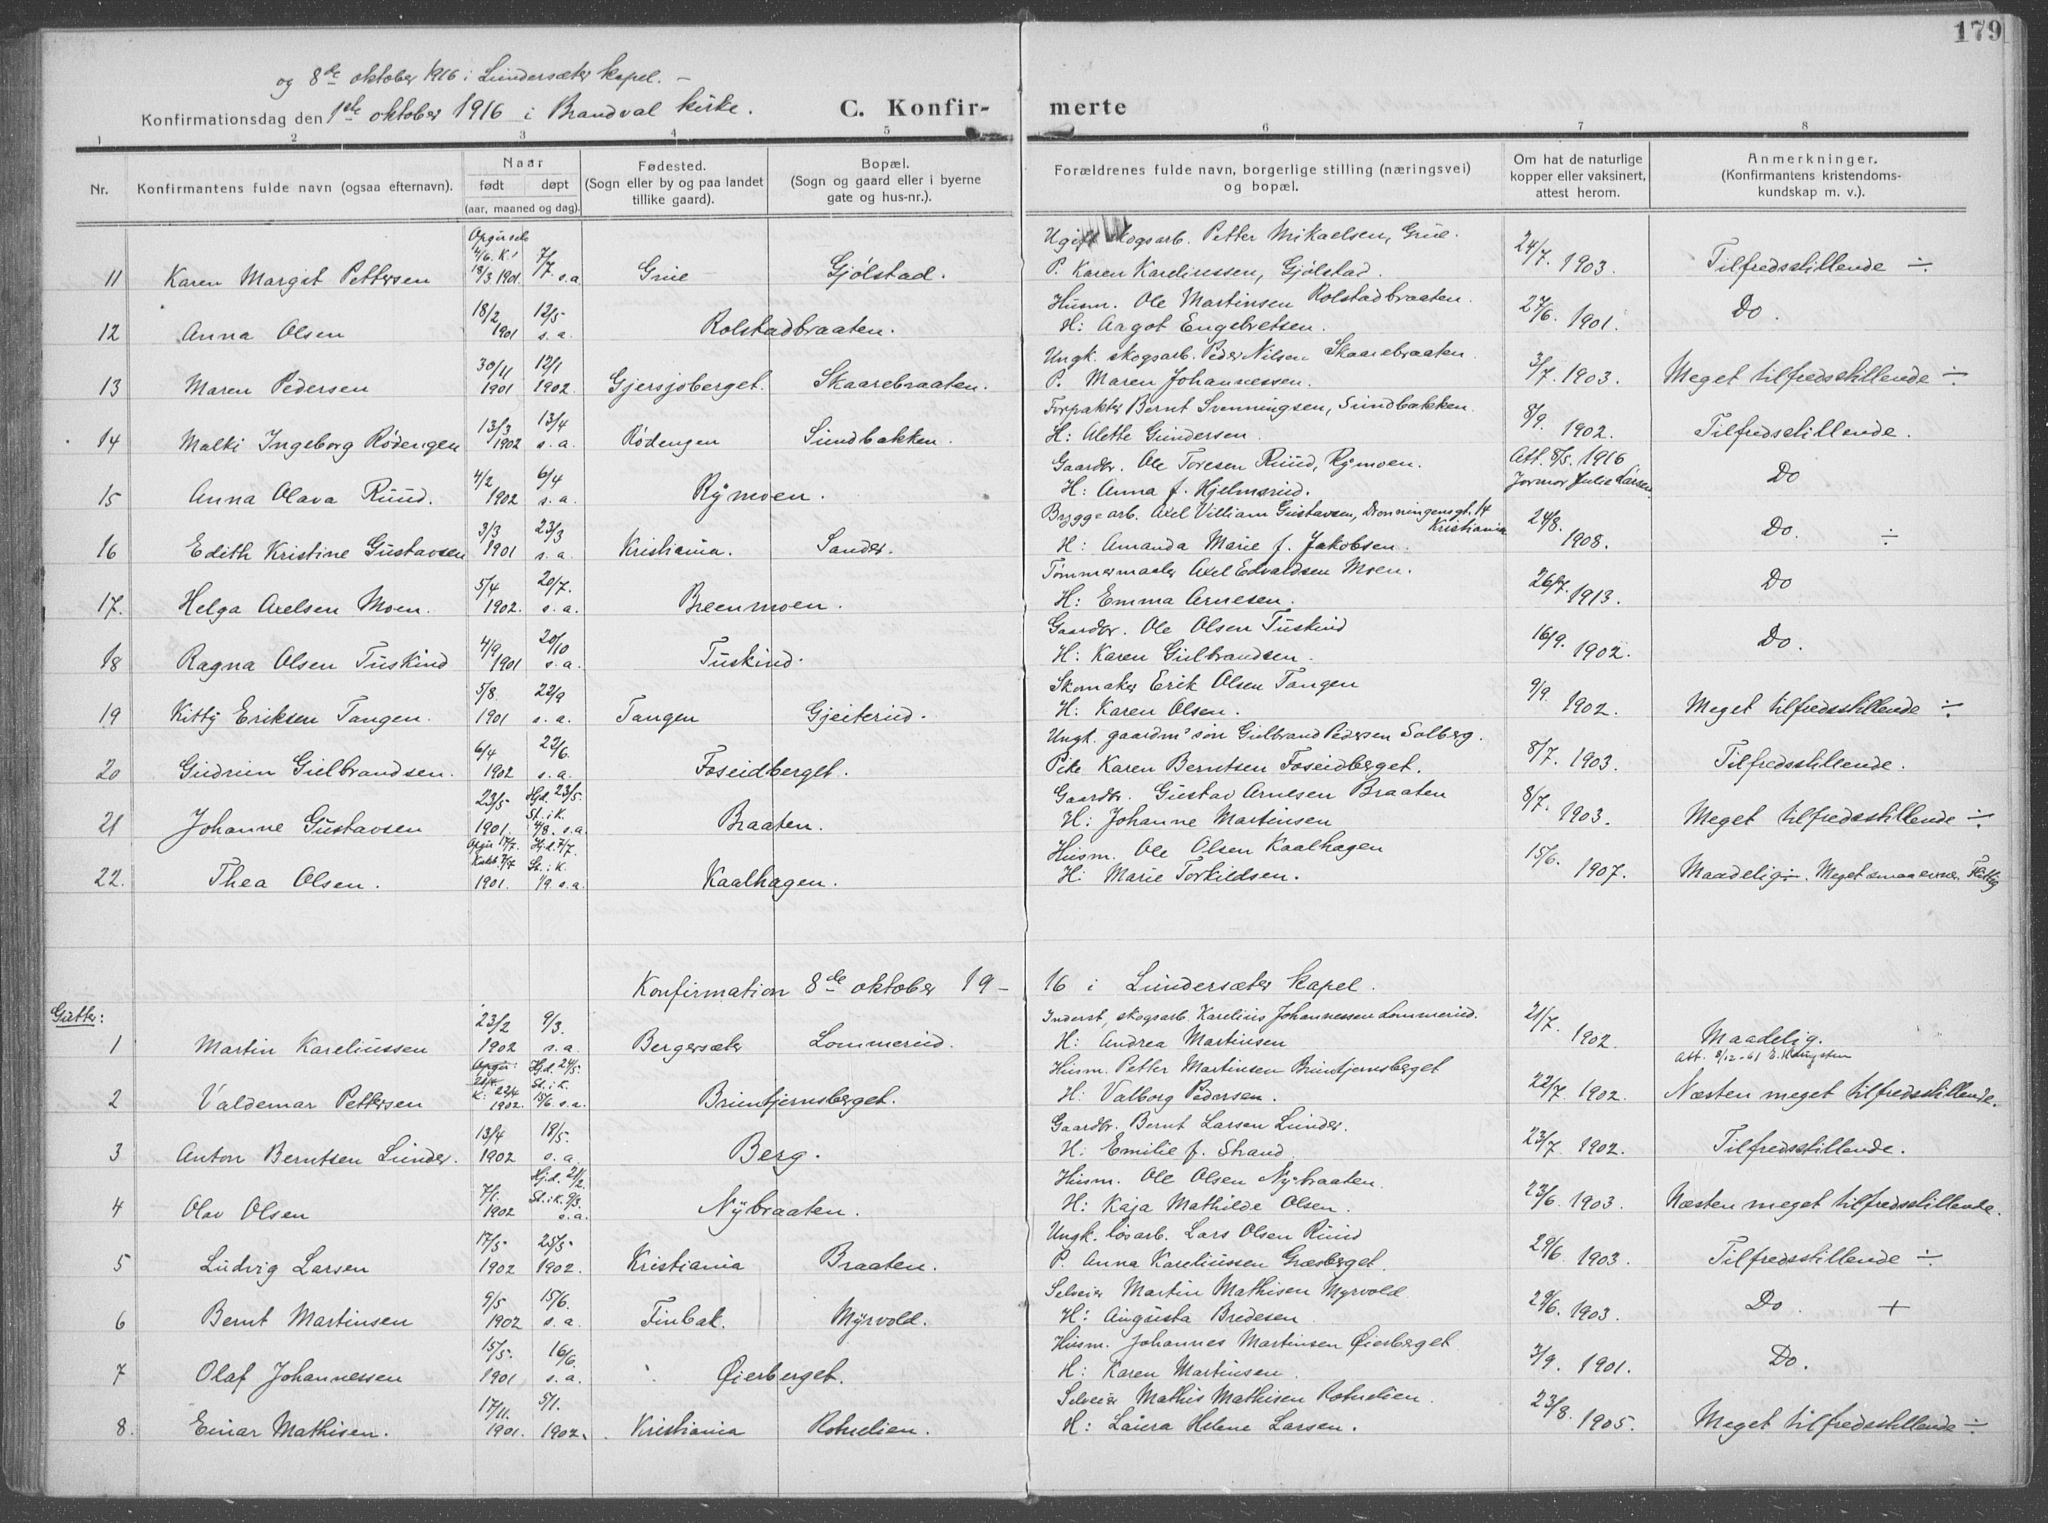 179
og 8de oktober 1916 i Lundersæter kapel. –
Konfirmationsdag den 1ste oktober 1916 i Brandval kirke.
C. Konfirmerte
1 2 3 4 5 6 7 8
Nr.
Konfirmantens fulde navn (ogsaa efternavn).
Naar
født døpt
(aar, maaned og dag).
Fødested.
(Sogn eller by og paa landet
tillike gaard).
Bopæl.
(Sogn og gaard eller i byerne
gate og hus-nr.).
Forældrenes fulde navn, borgerlige stilling (næringsvei)
og bopæl.
Om hat de naturlige
kopper eller vaksinert,
attest herom.
Anmerkninger.
(Konfirmantens kristendoms-
kundskap m. v.).
Ugift skogsarb. Petter Mikaelsen, Grue.
11 Karen Margit Pettersen 18/3 1901. 7/7. s.a. Grue Gjølstad. P. Karen Kareliussen, Gjølstad. 24/7. 1903. Tilfredsstillende ÷
Husm. Ole Martinsen Rolstadbraaten.
12 Anna Olsen 18/2 1901 12/5 s.a. Rolstadbraaten. H: Aagot Engebretsen. 27/6. 1901. Do.
Ungk. skogsarb. Peder Nilsen Skaarebraaten.
13 Maren Pedersen 30/11 1901 12/1 1902. Gjersjøberget. Skaarebraaten. P. Maren Johannessen. 3/7. 1903. Meget tilfredsstillende ÷
Forpakter Bernt Svenningsen, Sundbakken.
14 Malki Ingeborg Rødengen 13/3 1902 13/4 s.a. Rødengen Sundbakken. H: Alette Gundersen. 8/9. 1902. Tilfredsstillende.
Gaardbr. Ole Toresen Ruud, Rymoen. Att. 8/5. 1916
15 Anna Olava Ruud. 4/2 1902 6/4 s.a. Rymoen. H: Anna f. Hjelmsrud. Jormor Julie Larsen Do
Bryggearb. Axel Villiam Gustavsen, Dronningensgt. 14 Kristiania
16 Edith Kristine Gustavsen 3/3 1901 23/3 s.a. Kristiania. Sander. H: Amanda Marie f. Jakobsen. 24/8. 1908. Do. ÷
Tømmermaaler Axel Edvaldsen Moen.
17. Helga Axelsen Moen. 5/4 1902. 20/7. s.a. Breenmoen. H: Emma Arnesen. 26/7. 1913. Do
Gaardbr. Ole Olsen Tuskind
18 Ragna Olsen Tuskind 4/9 1901 20/10 s.a. Tuskind. H: Karen Gulbrandsen. 16/9. 1902. Do.
Skomaker Erik Olsen Tangen
19 Kitty Eriksen Tangen. 5/8. 1901 22/9 s.a. Tangen Gjeiterud. H: Karen Olsen. 9/9. 1902. Meget tilfredsstillende ÷
Ungk. gaardm's søn Gulbrand Pedersen Solberg.
20 Gudrun Gulbrandsen. 6/4 1902 22/6. s.a. Foseidberget. Pike Karen Berntsen Foseidberget. 8/7. 1903. Tilfredsstillende.
Gaardbr. Gustav Arnesen Braaten
21 Johanne Gustavsen 23/5 1901. Hjd. 23/5. St. i K. 4/8. s.a. Braaten. H: Johanne Martinsen 8/7. 1903. Meget tilfredsstillende ÷
Husm. Ole Olsen Kaalhagen
22. Thea Olsen. 1901. Hjd. 7/7. St. i K. 1/9. s.a. Kaalhagen. H: Marie Torkildsen. 15/6. 1907. Maadelig. Meget smaa evner. Flittig
Konfirmation 8de oktober 19– 16 i Lundersæter kapel.
Gutter:
Inderst, skogsarb. Karelius Johannessen Lommerud.
1 Martin Kareliussen 23/2 1902 9/3. s.a. Bergersæter Lommerud. H: Andrea Martinsen 21/7. 1902. Maadelig.
Att. 8/12-61 E. Haugsten
Husm. Petter Martinsen Bruntjernsberget
2 Valdemar Pettersen K: 22/4 1902. Hjd. 24/5. St. i K. 15/6. s.a. Bruntjernsberget. H: Valborg Pedersen. 22/7. 1902. Næsten meget tilfredsstillende.
Gaardbr. Bernt Larsen Lunder.
3 Anton Berntsen Lunder. 13/4 1902 18/5. s.a. Berg. H: Emilie f. Strand 23/7. 1902. Tilfredsstillende.
Husm. Ole Olsen Nybraaten.
4 Olav Olsen 7/1. 1902 Hjd. 21/2. St. i K. 9/3. s.a. Nybraaten. H: Kaja Mathilde Olsen. 23/6. 1903. Næsten meget tilfredsstillende.
Ungk. løsarb. Lars Olsen Ruud
5 Ludvig Larsen 17/5 1902 25/5 1902. Kristiania Braaten. P. Anna Kareliussen Græsberget. 29/6. 1903. Tilfredsstillende ÷
Selveier Martin Mathisen Myrvold.
6 Bernt Martinsen 9/5 1902 15/6. s.a. Finbak. Myrvold. H: Augusta Bredesen 29/6. 1903. Do. +
Husm. Johannes Martinsen Øierberget
7 Olaf Johannessen 15/5. 1901 16/6. s.a. Øierberget. H: Karen Martinsen. 3/9. 1901. Do.
Selveier Mathis Mathisen Rotnelien.
8. Einar Mathisen. 17/11. 1901. 5/1. 1902. Kristiania Rotnelien. H: Laura Helene Larsen. 23/8. 1905. Meget tilfredsstillende ÷